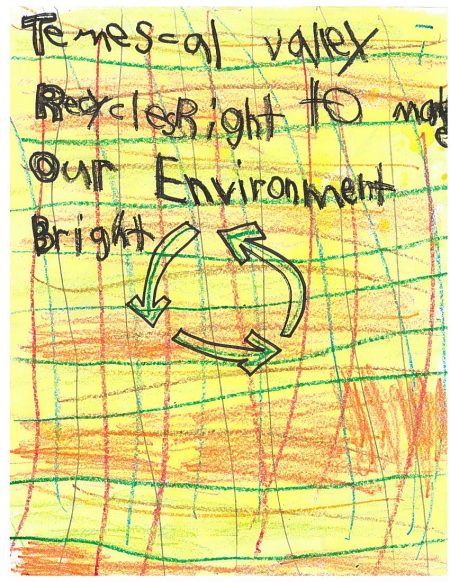 Temescal valley
RecyclesRight to make
Our Environment
Bright